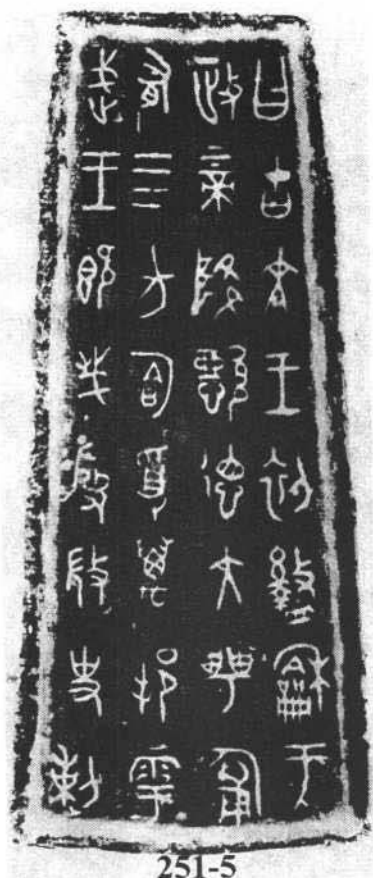 曰古文王初盭龢于
政上帝降懿德大甹匍
有四方匌受萬邦雩
武王既𢦏殷𢼸史剌
251-5